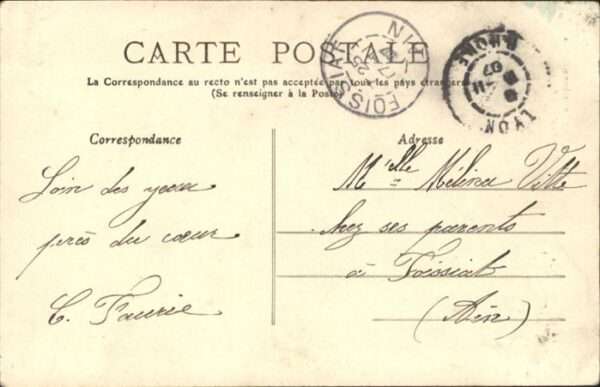 CARTE POSTALE
La Correspondance au recto n'est pas acceptée par tous les pays étrangers
(Se renseigner à la Poste)
FOISSIAT AIN
LYON RHONE
07
Correspondance
Adresse
Loin des yeux
près du cœur
C. Faurie
Melle Mélina Vitte
chez ses parents
à Foissiat
(Ain)